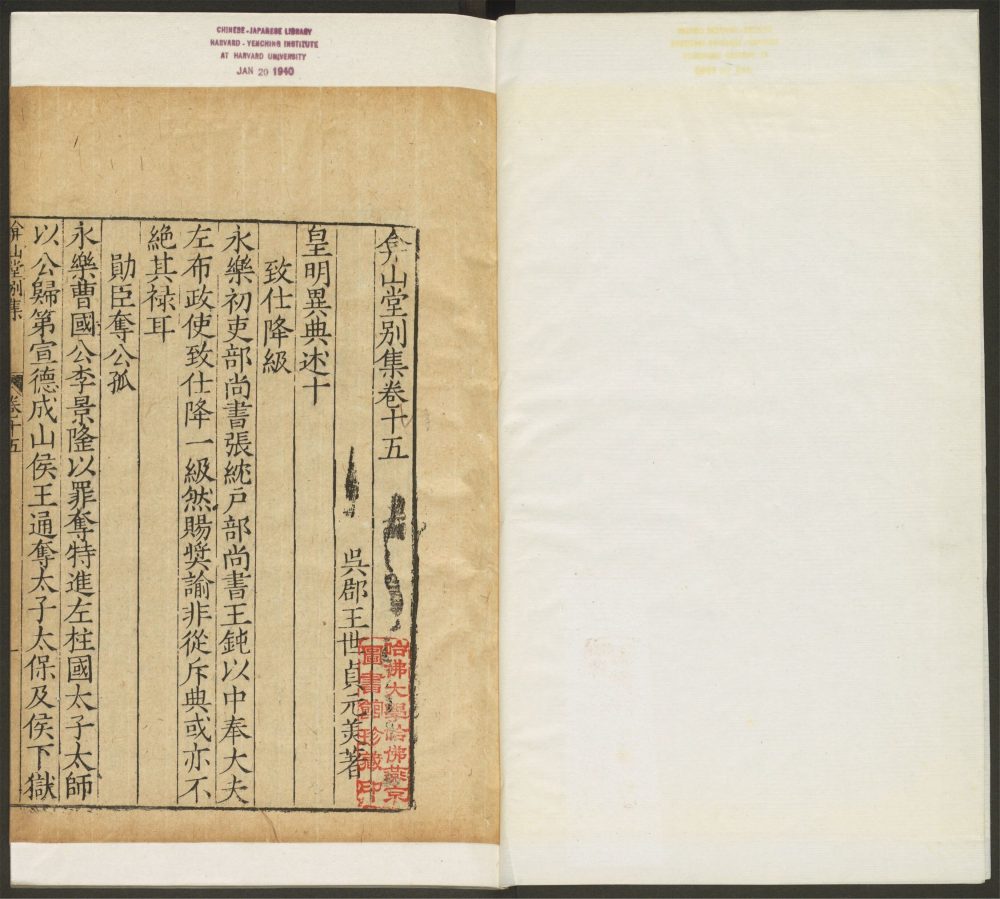 CHINESE-JAPANESE LIBRARY
HARVARD-YENCHING INSTITUTE
AT HARVARD UNIVERSITY
JAN 20 1940
弇山堂别集卷十五
吳郡王世貞元美著
皇明異典述十
致仕降級
永樂初吏部尚書張紞戶部尚書王鈍以中奉大夫
左布政使致仕降一級然賜奬諭非從斥典或亦不
絶其禄耳
勛臣奪公孤
永樂曹國公李景隆以罪奪特進左柱國太子太師
以公歸第宣德成山侯王通奪太子太保及侯下獄
弇山堂别集
卷十五
一
哈佛大學哈佛燕京
圖書館珍藏印